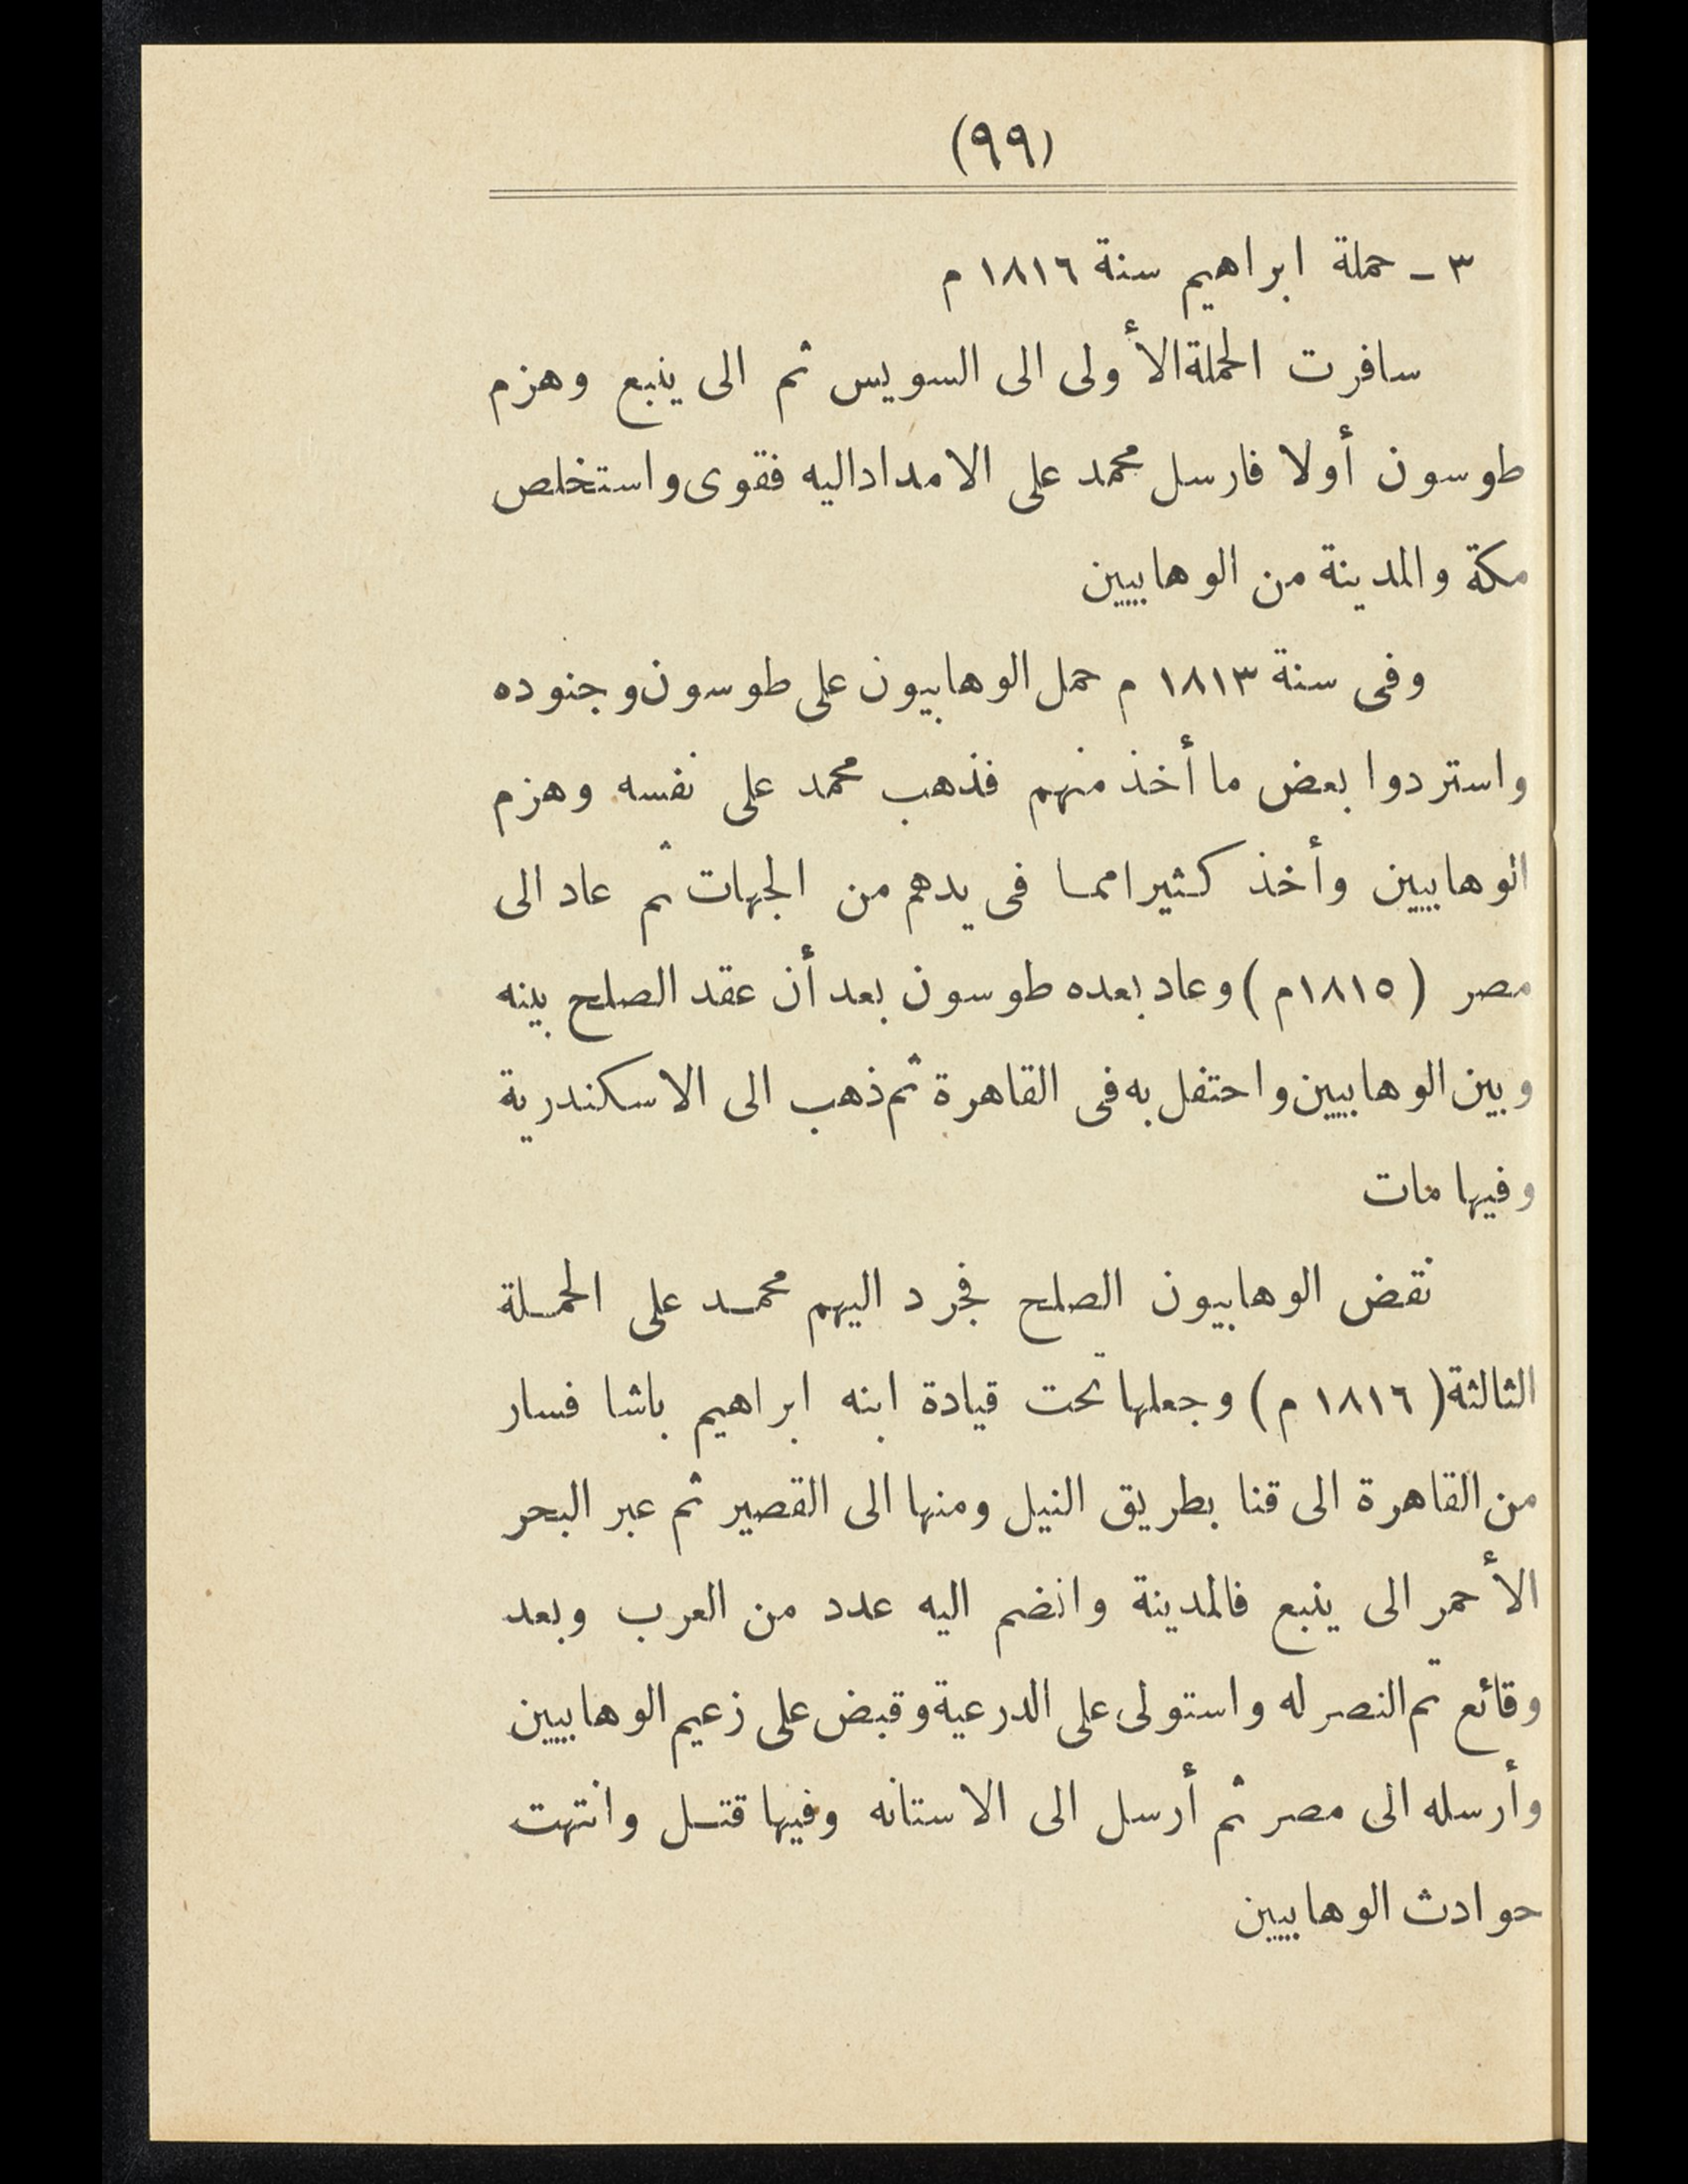 (٩٩)
٣ - حملة ابراهيم سنة ١٨١٦ م
سافرت الحملة الأولى الى السويس ثم الى ينبع وهزم
طوسون أولا فارسل محمد على الامداد اليه فقوى واستخلص
مكة والمدينة من الوهابيين
وفى سنة ١٨١٣ م حمل الوهابيون على طوسون وجنوده
واستردوا بعض ما أخذ منهم فذهب محمد على نفسه وهزم
الوهابيين وأخذ كثيرا مما فى يدهم من الجهات ثم عاد الى
مصر ( ١٨١٥م ) وعاد بعده طوسون بعد أن عقد الصلح بينه
وبين الوهابيين واحتفل به فى القاهرة ثم ذهب الى الاسكندرية
وفيها مات
نقض الوهابيون الصلح فجرد اليهم محمد على الحملة
الثالثة ( ١٨١٦ م ) وجعلها تحت قيادة ابنه ابراهيم باشا فسار
من القاهرة الى قنا بطريق النيل ومنها الى القصير ثم عبر البحر
الأحمر الى ينبع فالمدينة وانضم اليه عدد من العرب وبعد
وقائع تم النصر له واستولى على الدرعية وقبض على زعيم الوهابيين
وأرسله الى مصر ثم أرسل الى الاستانه وفيها قتل وانتهت
حوادث الوهابيين